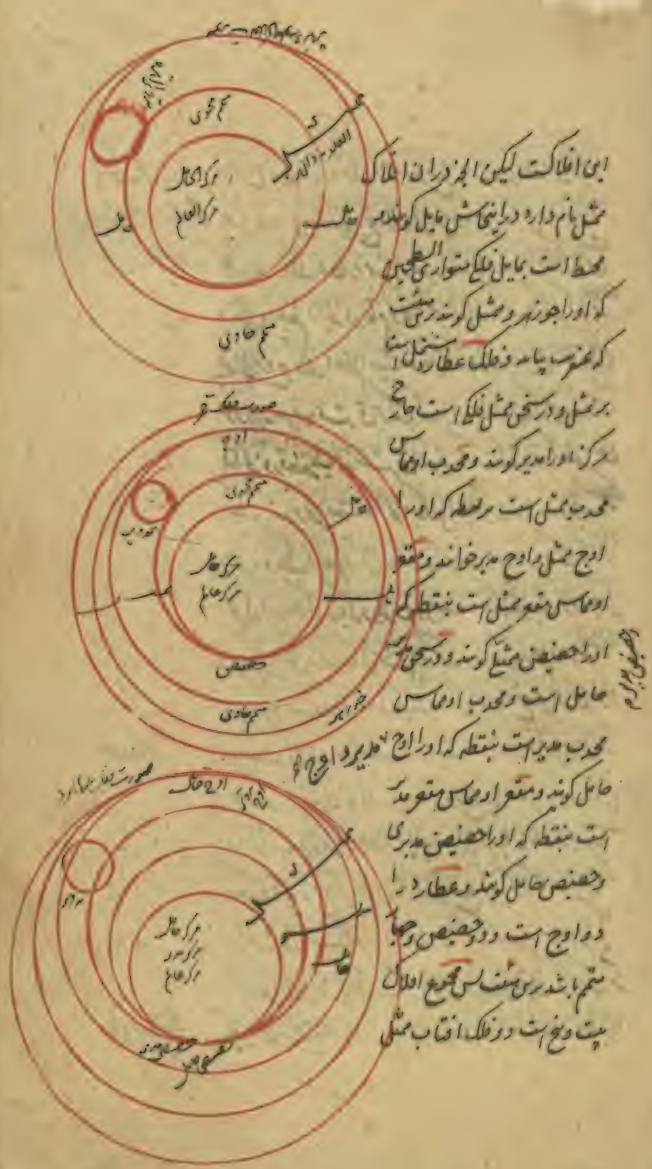 این افلاکست لیکن الجزدران افلاک
ممثل نام دارد دراینجاش مایل کویند و
محیط است بمایل فلکی متوازی السطحین
که اورا جوزهر و ممثل کویند برین صفت
که عنقریب بیاید و فلک عطارد مشتمل است
بر ممثل و در سخن ممثل فلکی است خارج
مرکز اورا مدیر کویند و محدب او مماس
محدب ممثل است بر نقطه که اورا
اوج ممثل و اوج مدیر خوانند و مقعر
او مماس مقعر ممثل است بنقطه که
اورا حضیض ممثل کویند و در سخن مدیر
حامل است و محدب او مماس
محدب مدیر است بنقطه که اورا اوج مدیر و اوج
حامل کویند و مقعر او مماس مقعر مدیر
است بنقطه که اورا حضیض مدیری
و حضیض حامل کویند و عطارد را
دو اوج است و دو حضیض و چهار
متمم باشد برین صفت پس مجموع افلاک
بیست و پنج است و فلک افتاب ممثل
و حضیض مدیر هم
متمم محوی
مرکز الحامل
مرکز العالم
مایل
حامل
متمم حاوی
صورت فلک قمر
اوج
متمم محوی
مایل
تدویر
مرکز حامل
مرکز عالم
حضیض
متمم حاوی
جوزهر
صورت فلک عطارد
اوج حامل
مرکز حامل
مرکز مدیر
مرکز عالم
حامل